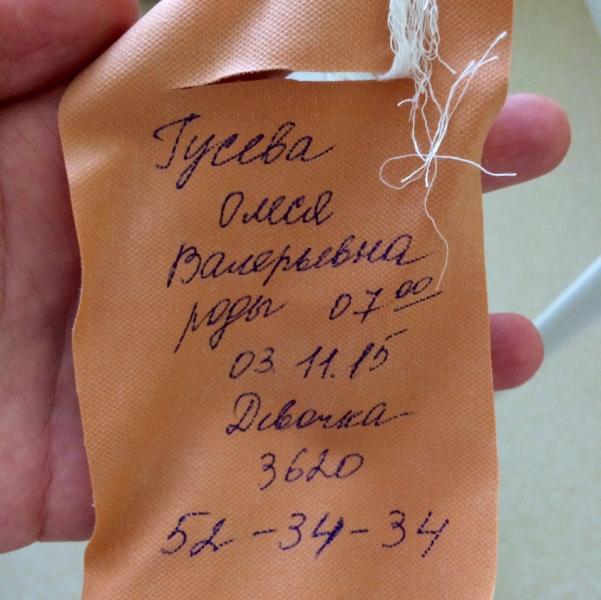 Гусева
Олеся
Валерьевна
роды 07⁰⁰
03.11.15
Девочка
3620
52-34-34